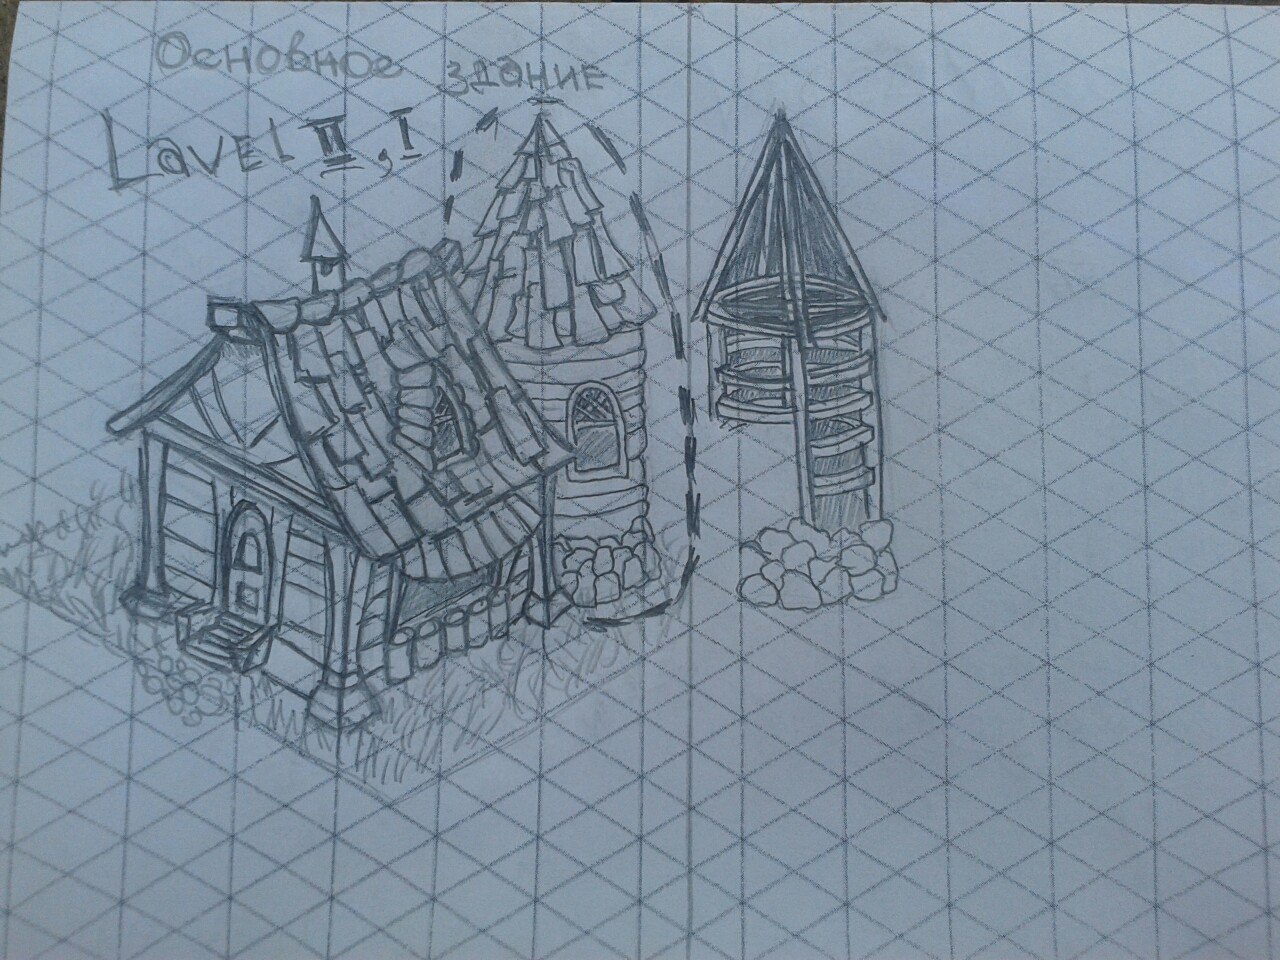 Основное здание
Lavel II, I